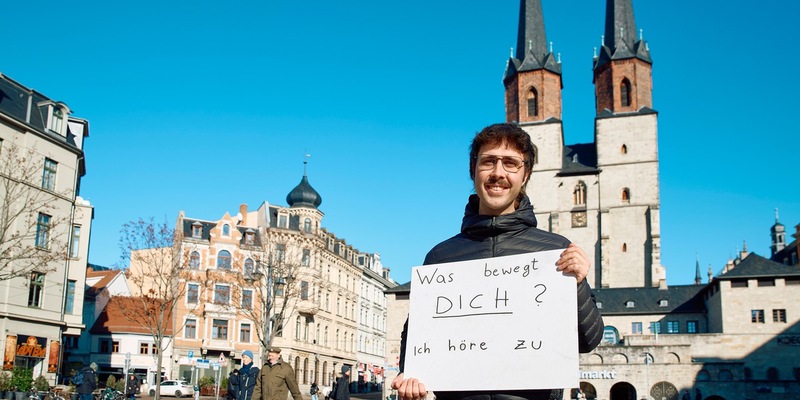 Was bewegt
DICH?
Ich höre zu
markt